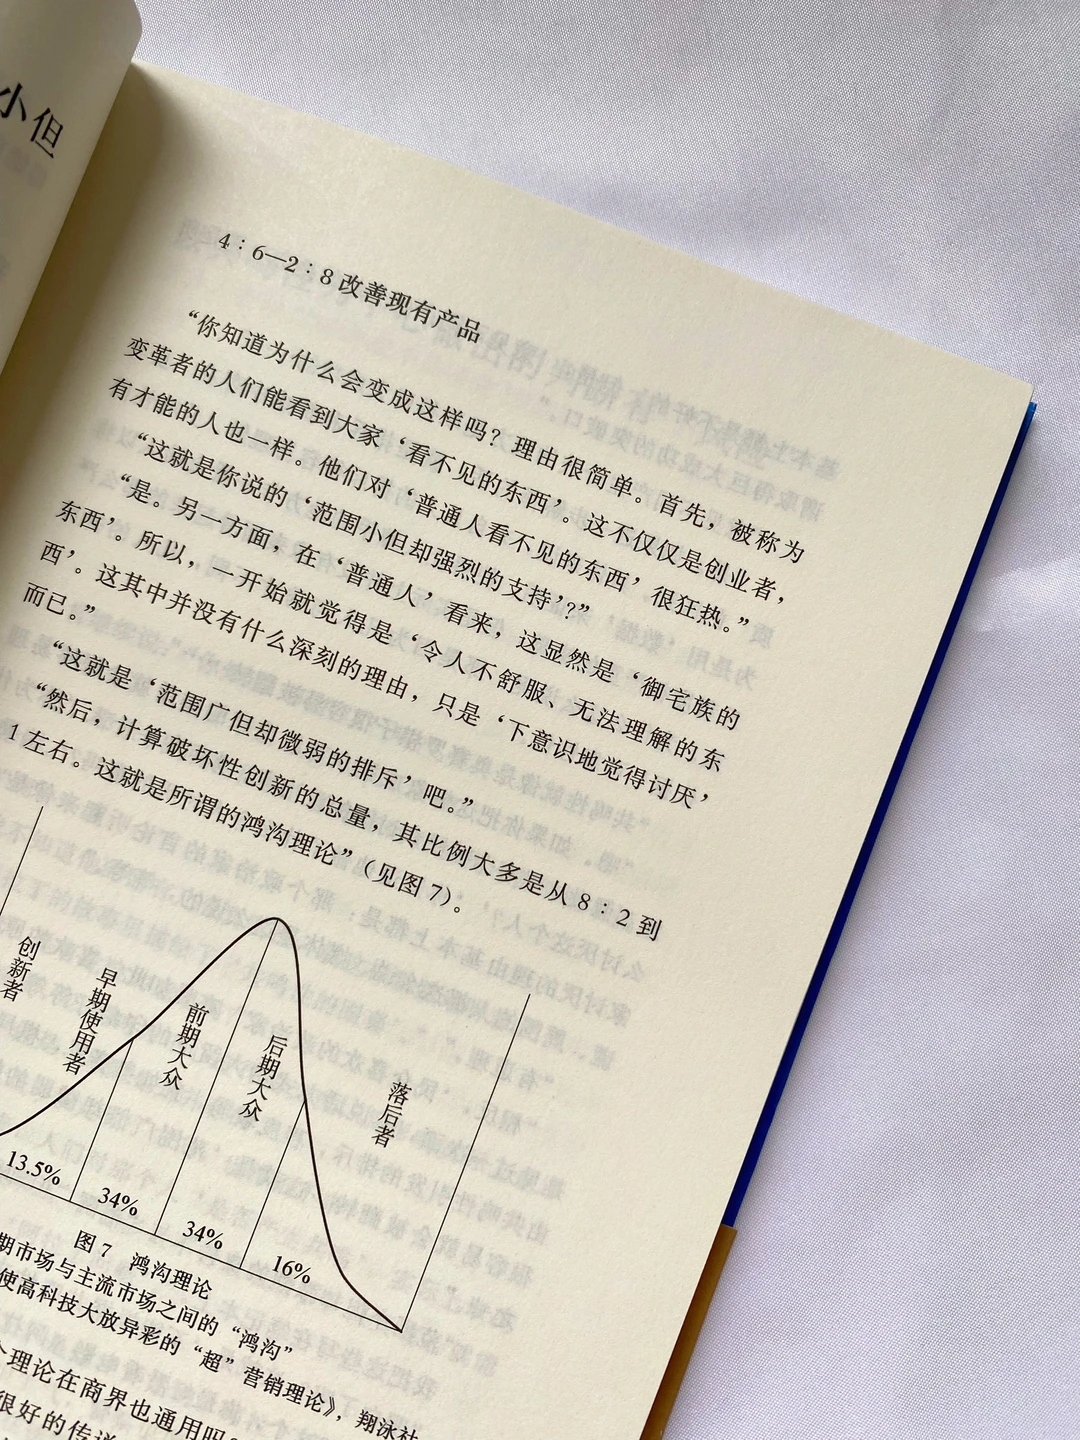 小但
4：6—2：8改善现有产品
“你知道为什么会变成这样吗？理由很简单。首先，被称为
变革者的人们能看到大家‘看不见的东西’。这不仅仅是创业者，
有才能的人也一样。他们对‘普通人看不见的东西’很狂热。”
“这就是你说的‘范围小但却强烈的支持’？”
“是。另一方面，在‘普通人’看来，这显然是‘御宅族的
东西’。所以，一开始就觉得是‘令人不舒服、无法理解的东
西’。这其中并没有什么深刻的理由，只是‘下意识地觉得讨厌’
而已。”
“这就是‘范围广但却微弱的排斥’吧。”
“然后，计算破坏性创新的总量，其比例大多是从8：2到
1左右。这就是所谓的鸿沟理论”（见图7）。
创新者
早期使用者
前期大众
后期大众
落后者
13.5%
34%
34%
16%
图7 鸿沟理论
期市场与主流市场之间的“鸿沟”
使高科技大放异彩的“超”营销理论》，翔泳社
个理论在商界也通用吗
很好的传说